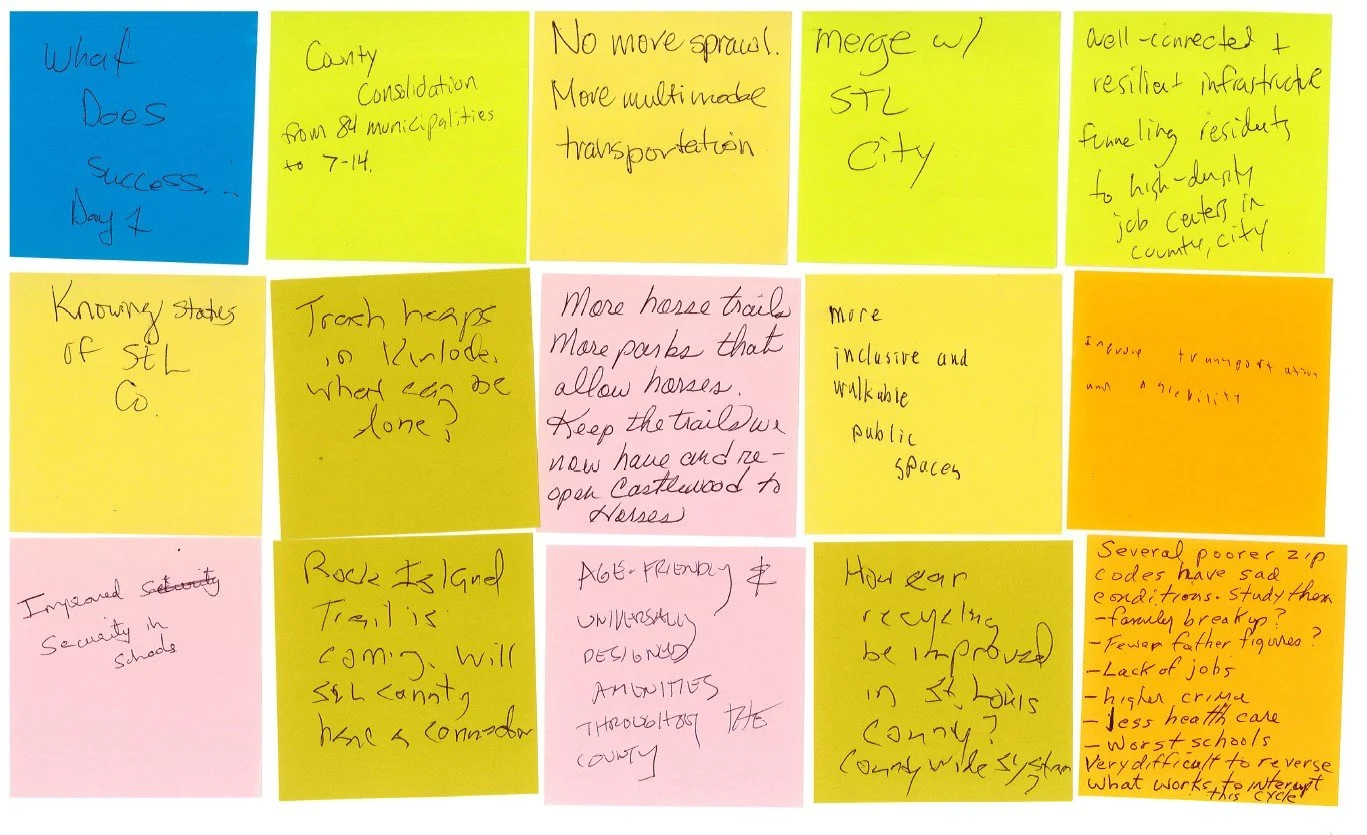 What
Does
Success...
Day 1
County
Consolidation
from 84 municipalities
to 7-14.
No more sprawl.
More multimodal
transportation
merge w/
STL
City
well-connected +
resilient infrastructure
funneling residents
to high-density
job centers in
county, city
Knowing states
of StL
Co.
Trash heaps
in Kinlock.
What can be
done?
More horse trails
More parks that
allow horses.
Keep the trails we
now have and re-
open Castlewood to
Horses
more
inclusive and
walkable
public
spaces
Improve transportation
and
Improved security
Security in
Schools
Rock Island
Trail is
coming. Will
StL County
have a connector
AGE-FRIENDLY &
UNIVERSALLY
DESIGNED
AMENITIES
THROUGHOUT THE
COUNTY
How can
recycling
be improved
in St. Louis
County?
County wide system
?
Several poorer zip
codes have sad
conditions. Study them
-family breakup?
-Fewer father figures?
-Lack of jobs
-higher crime
-less health care
-Worst schools
Very difficult to reverse
What works to interupt
this cycle